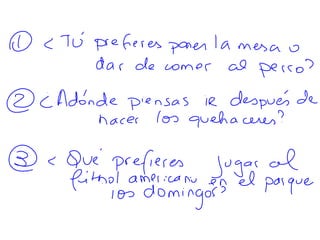 ① ¿Tú prefieres poner la mesa o
dar de comer al perro?
② ¿Adónde piensas ir después de
hacer los quehaceres?
③ ¿Qué prefieres jugar al
fútbol americano en el parque
los domingos?